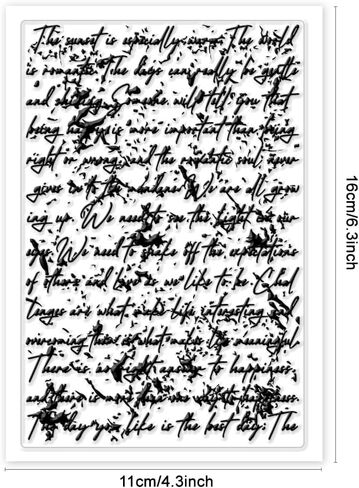 The sunset is especially warm. The world
is romantic. The days can really be gentle
and shining. Someone will tell you that
being happy is more important than being
right or wrong, and the romantic soul never
gives in to the mundane. We are all grow
ing up. We need to see the light in our
eyes. We need to shake off the expectations
of others and live as we like to be. Chal
lenges are what make life interesting and
overcoming them is what makes life meaningful
There is no right answer to happiness,
and there is more than one way to happiness.
The day you like is the best day. The
16cm/6.3inch
11cm/4.3inch